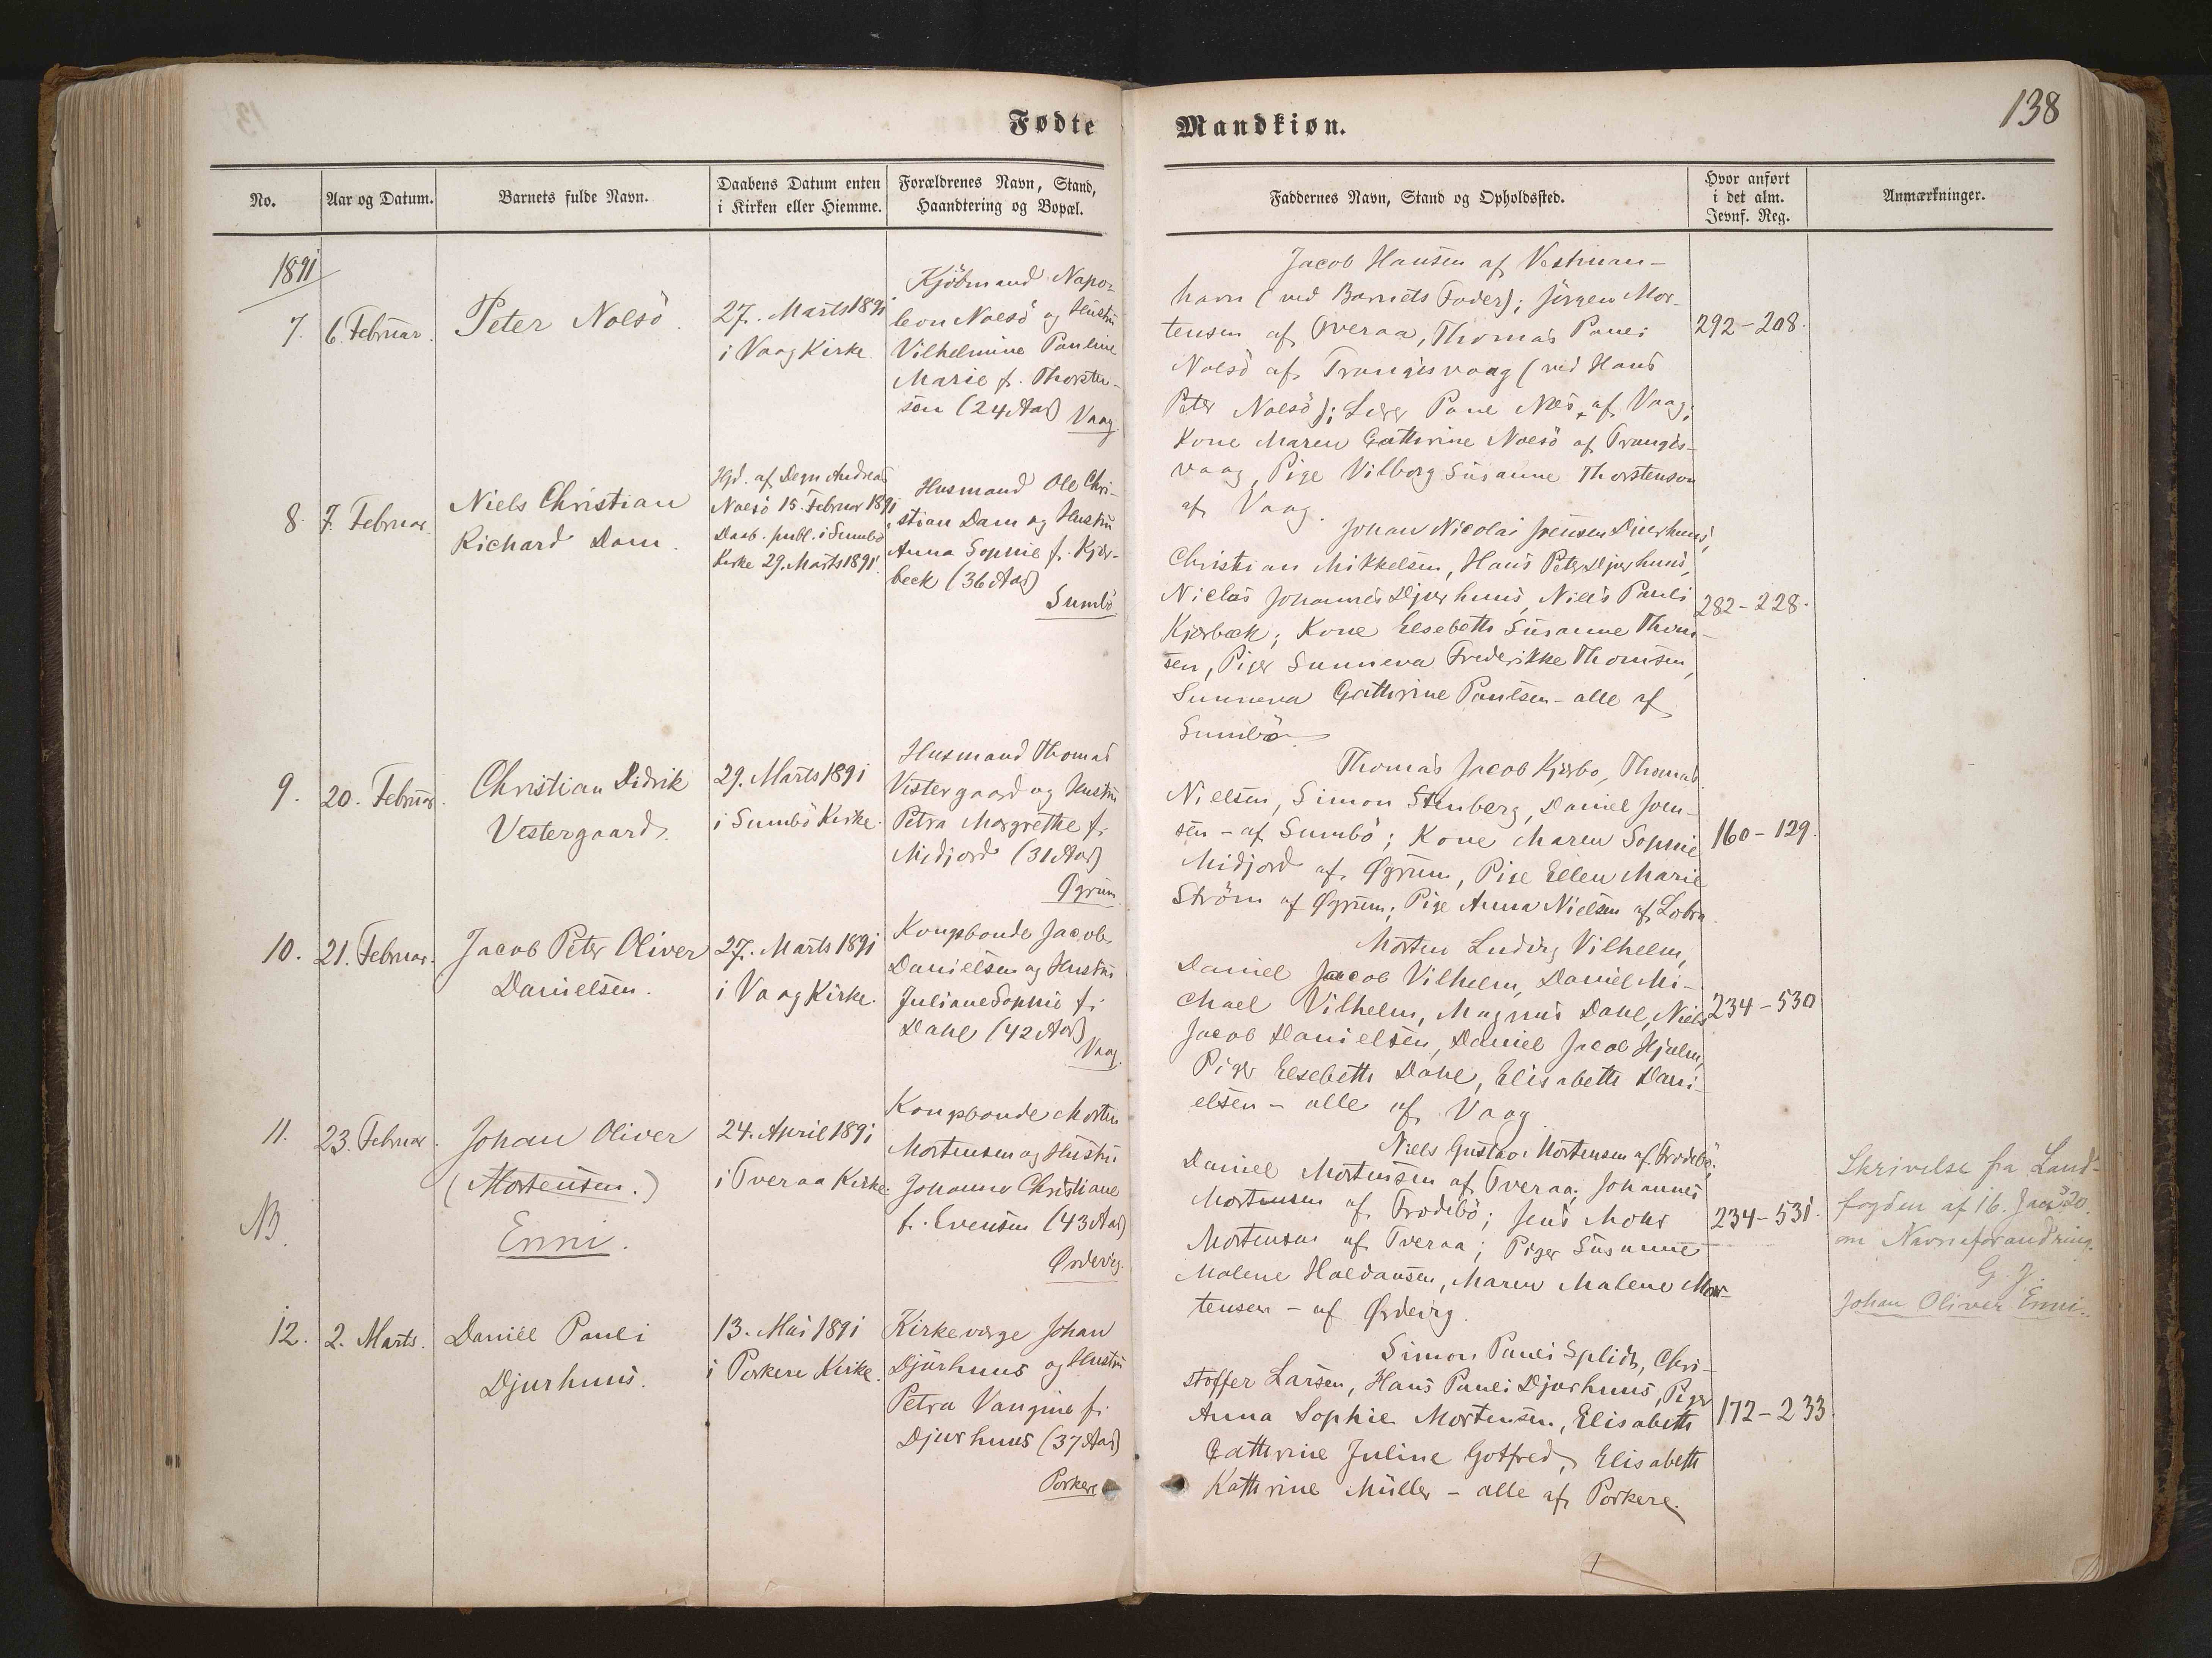 Fødte
Mandkiøn.
138
No.
Aar og Datum.
Barnets fulde Navn.
Daabens Datum enten
i Kirken eller Hiemme.
Forældrenes Navn, Stand,
Haandtering og Bopæl.
Faddernes Navn, Stand og Opholdssted.
Hvor anført
i det alm.
Jevnf. Reg.
Anmærkninger.
1891
7.
6. Februar.
Peter Nolsö.
27. Marts 1891
i Vaag Kirke.
Kjöbmand Napo-
leon Nolsö og Hustru
Vilhelmine Pauline
Marie f. Thorsten-
son (24 Aar)
Vaag.
Jacob Hansen af Vestman-
havn (ved Barnets Fader); Jörgen Mor-
tensen af Tveraa, Thomas Pauli
Nolsö af Trangisvaag (ved Hans
Peter Nolsö); Lærer Poul Næs af Vaag;
Kone Maren Cathrine Nolsö af Trangis-
vaag, Pige Vilborg Susanne Thorstenson
af Vaag.
292-208.
8.
7. Februar.
Niels Christian
Richard Dam.
Hjd. af Degn Andreas
Nolsö 15. Februar 1891,
Daab. publ. i Sumbö
Kirke 29. Marts 1891.
Husmand Ole Chri-
stian Dam og Hustru
Anna Sophie f. Kjær-
beck (36 Aar)
Sumbö
Johan Nicolai Joensen Djurhuus,
Christian Mikkelsen, Hans Peter Djurhuus,
Niclas Johannes Djurhuus, Niels Pauli
Kjærbæk; Kone Elsebeth Susanne Thom-
sen, Piger Sunneva Frederikke Thomsen,
Sunneva Cathrine Poulsen - alle af
Sumbö.
282-228.
9.
20. Februar.
Christian Didrik
Vestergaard.
29. Marts 1891
i Sumbö Kirke.
Husmand Thomas
Vestergaard og Hustru
Petra Margrethe f.
Midjord (31 Aar)
Øgrum.
Thomas Jacob Kjærbo, Thomas
Nielsen, Simon Stenberg, Daniel Joen-
sen - af Sumbö; Kone Maren Sophie
Midjord af Øgrum, Pige Ellen Marie
Ström af Øgrum; Pige Anna Nielsen af Lobra.
160-129.
10.
21. Februar.
Jacob Peter Oliver
Danielsen.
27. Marts 1891
i Vaag Kirke.
Kongsbonde Jacob
Danielsen og Hustru
Juliane Sophie f.
Dahl (42 Aar)
Vaag.
Morten Ludvig Vilhelm,
Daniel Jacob Vilhelm, Daniel Mi-
chael Vilhelm, Magnus Dahl, Niels
Jacob Danielsen, Daniel Jacob Hjalm,
Piger Elsebeth Dahl, Elisabeth Dani-
elsen - alle af Vaag.
234-530
11.
23. Februar.
Johan Oliver
(Mortensen.)
Enni.
NB.
24. April 1891
i Tveraa Kirke.
Kongsbonde Morten
Mortensen og Hustru
Johanne Christiane
f. Evensen (43 Aar)
Ördevig.
Niels Gustav Mortensen af Frodebö;
Daniel Mortensen af Tveraa; Johannes
Mortensen af Frodebö; Jens Mohr
Mortensen af Tveraa; Piger Susanne
Malene Haldansen, Maren Malene Mor-
tensen - af Ördevig.
234-531.
Skrivelse fra Land-
fogden af 16. Jan. 20.
om Navneforandring.
G. J.
Johan Oliver Enni.
12.
2. Marts.
Daniel Pauli
Djurhuus.
13. Mai 1891
i Porkere Kirke.
Kirkeværge Johan
Djurhuus og Hustru
Petra Vangine f.
Djurhuus (37 Aar)
Porkere
Simon Pauli Splid, Chri-
stoffer Larsen, Hans Pauli Djurhuus, Piger
Anna Sophie Mortensen, Elisabeth
Cathrine Juline Gotfred, Elisabeth
Kathrine Müller - alle af Porkere.
172-233